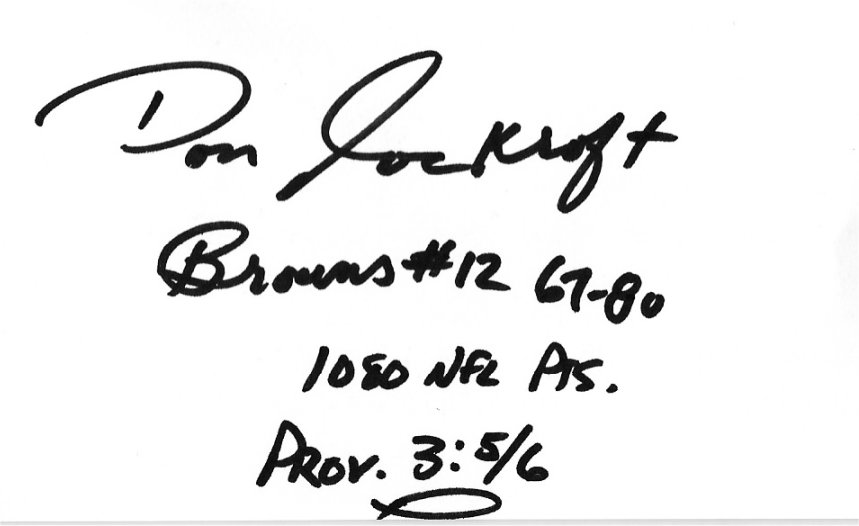 Don Cockroft
Browns #12 67-80
1080 NFL Pts.
Prov. 3:5/6